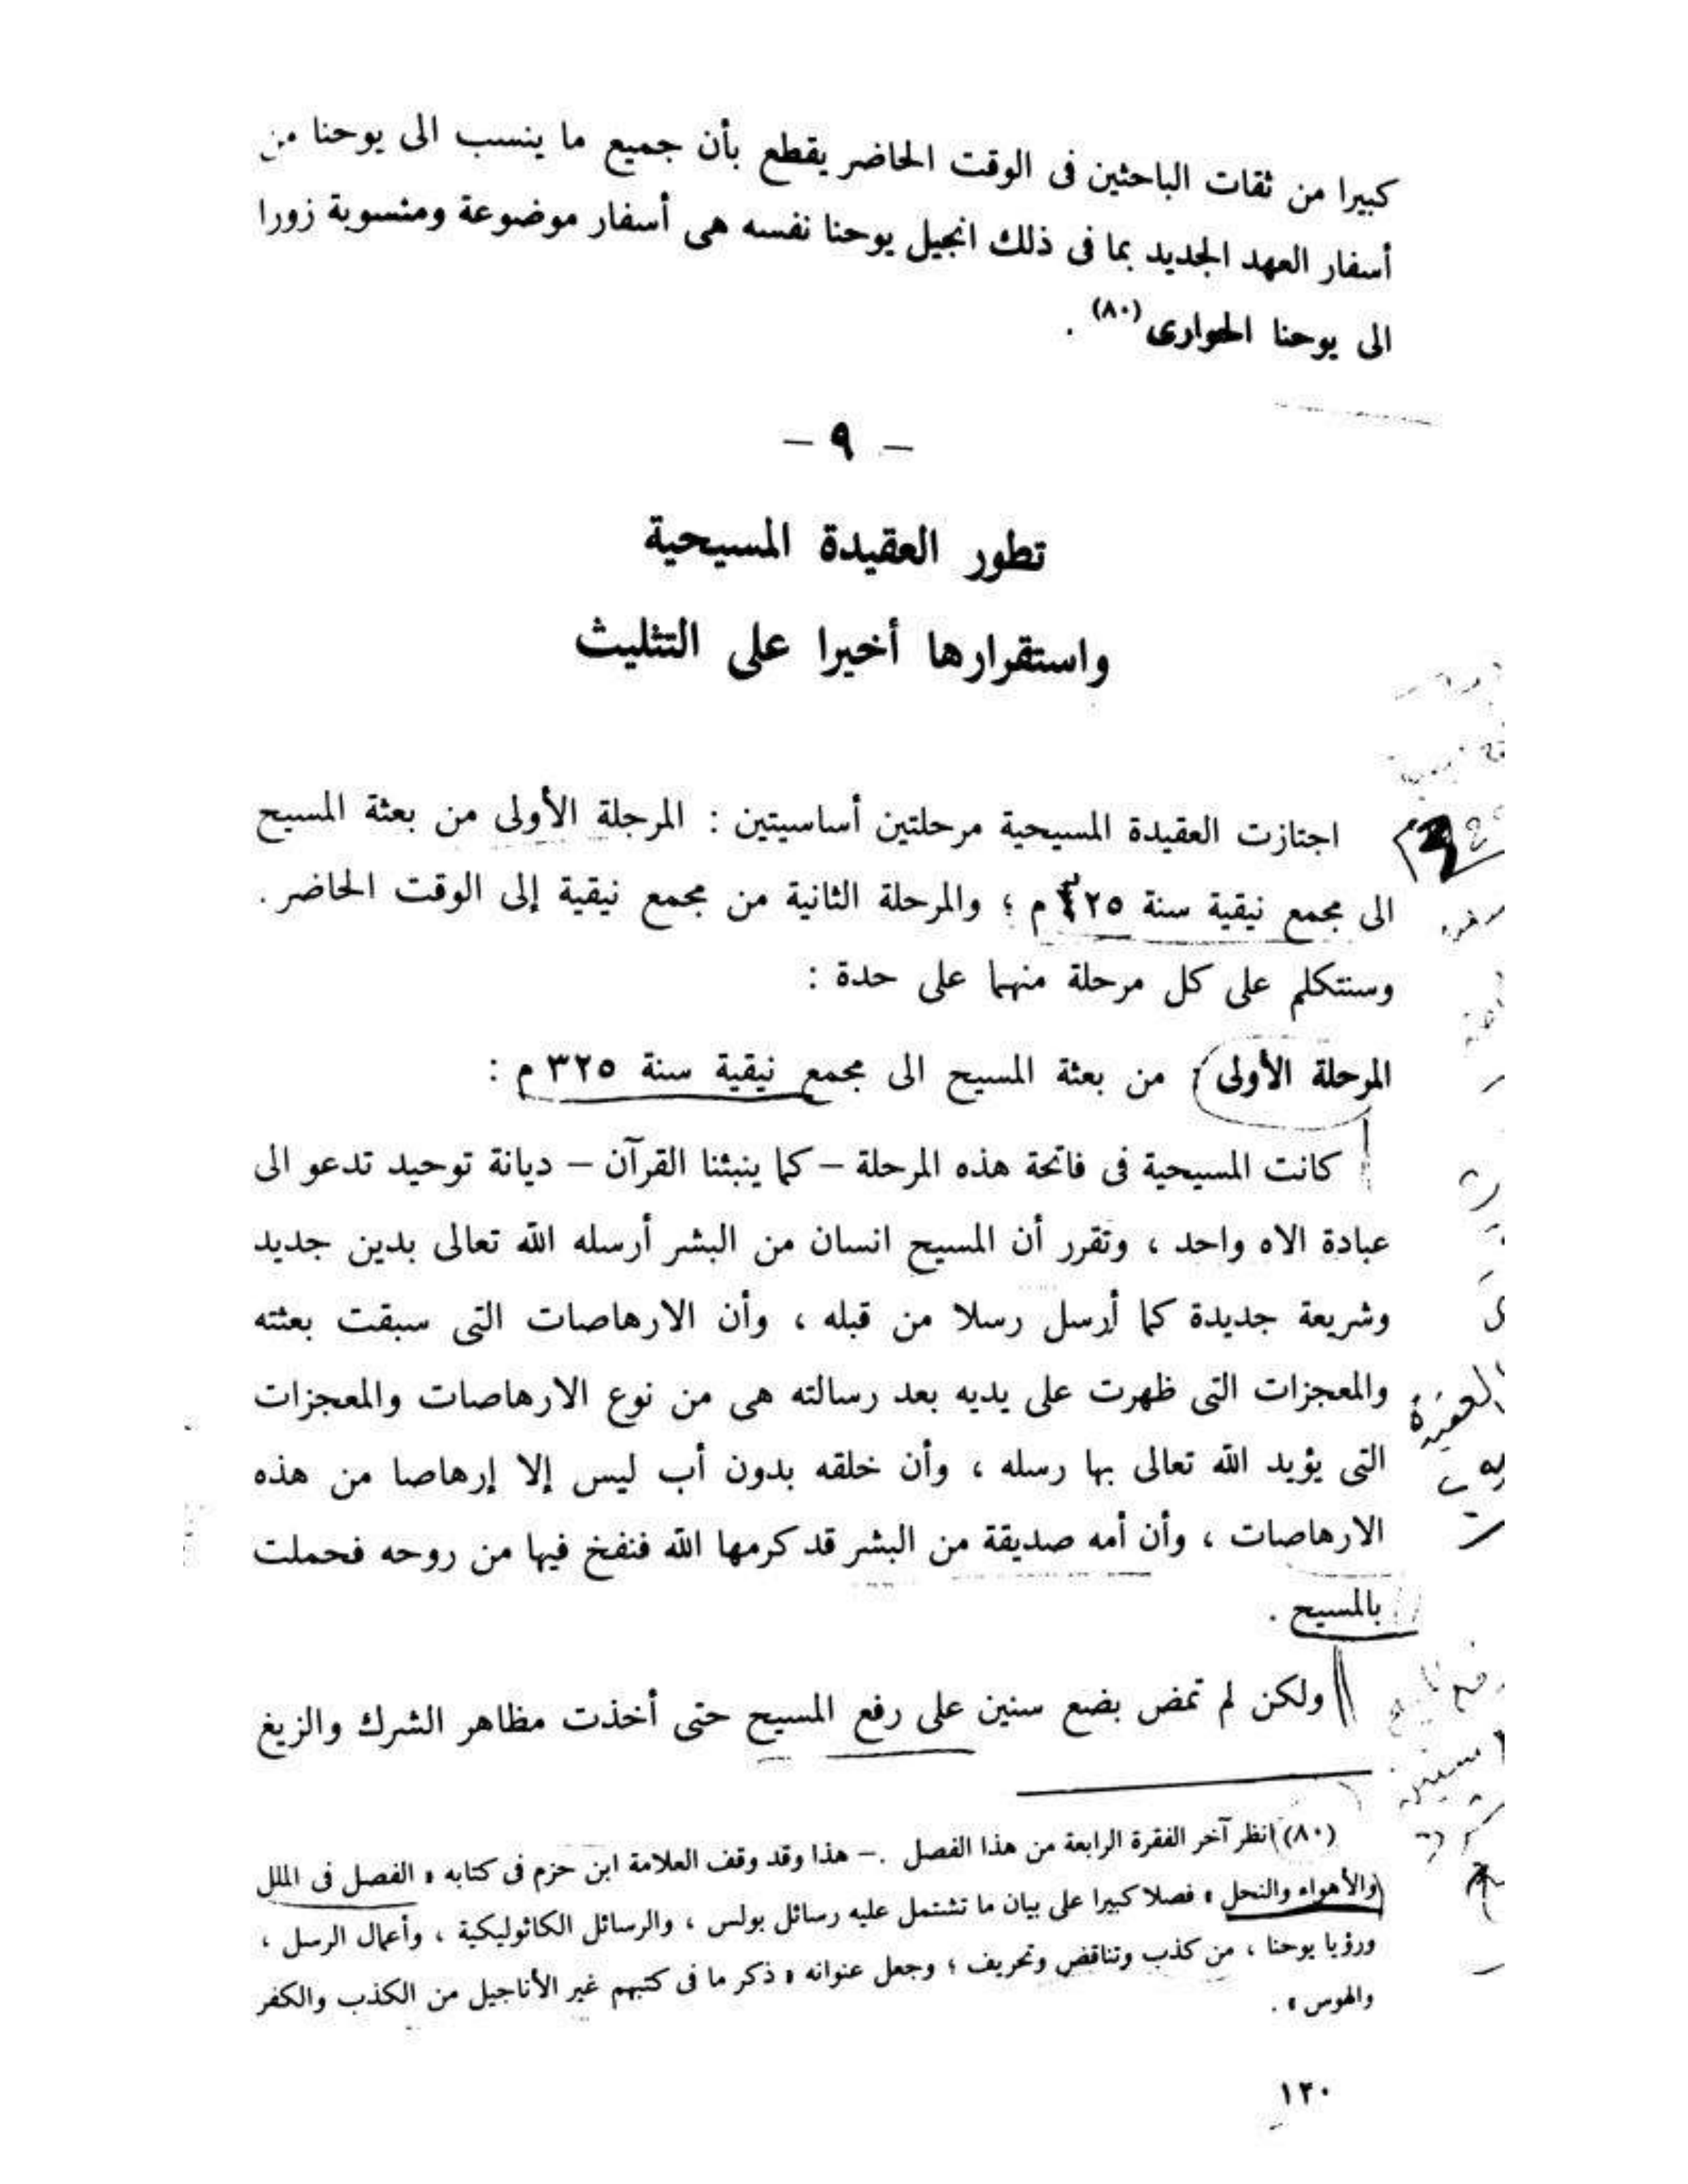 كبيرا من ثقات الباحثين فى الوقت الحاضر يقطع بأن جميع ما ينسب الى يوحنا من
أسفار العهد الجديد بما فى ذلك انجيل يوحنا نفسه هى أسفار موضوعة ومنسوبة زورا
الى يوحنا الحوارى (٨٠) .
– ٩ –
تطور العقيدة المسيحية
واستقرارها أخيرا على التثليث
اجتازت العقيدة المسيحية مرحلتين أساسيتين : المرحلة الأولى من بعثة المسيح
الى مجمع نيقية سنة ٣٢٥ م ؛ والمرحلة الثانية من مجمع نيقية إلى الوقت الحاضر .
وسنتكلم على كل مرحلة منهما على حدة :
المرحلة الأولى : من بعثة المسيح الى مجمع نيقية سنة ٣٢٥ م :
كانت المسيحية فى فاتحة هذه المرحلة – كما ينبئنا القرآن – ديانة توحيد تدعو الى
عبادة الاه واحد ، وتقرر أن المسيح انسان من البشر أرسله الله تعالى بدين جديد
وشريعة جديدة كما أرسل رسلا من قبله ، وأن الارهاصات التى سبقت بعثته
والمعجزات التى ظهرت على يديه بعد رسالته هى من نوع الارهاصات والمعجزات
التى يؤيد الله تعالى بها رسله ، وأن خلقه بدون أب ليس إلا إرهاصا من هذه
الارهاصات ، وأن أمه صديقة من البشر قد كرمها الله فنفخ فيها من روحه فحملت
بالمسيح .
ولكن لم تمض بضع سنين على رفع المسيح حتى أخذت مظاهر الشرك والزيغ
(٨٠) انظر آخر الفقرة الرابعة من هذا الفصل . – هذا وقد وقف العلامة ابن حزم فى كتابه « الفصل فى الملل
والأهواء والنحل » فصلا كبيرا على بيان ما تشتمل عليه رسائل بولس ، والرسائل الكاثوليكية ، وأعمال الرسل ،
ورؤيا يوحنا ، من كذب وتناقض وتحريف ؛ وجعل عنوانه « ذكر ما فى كتبهم غير الأناجيل من الكذب والكفر
والهوس » .
١٢٠
العقيدة